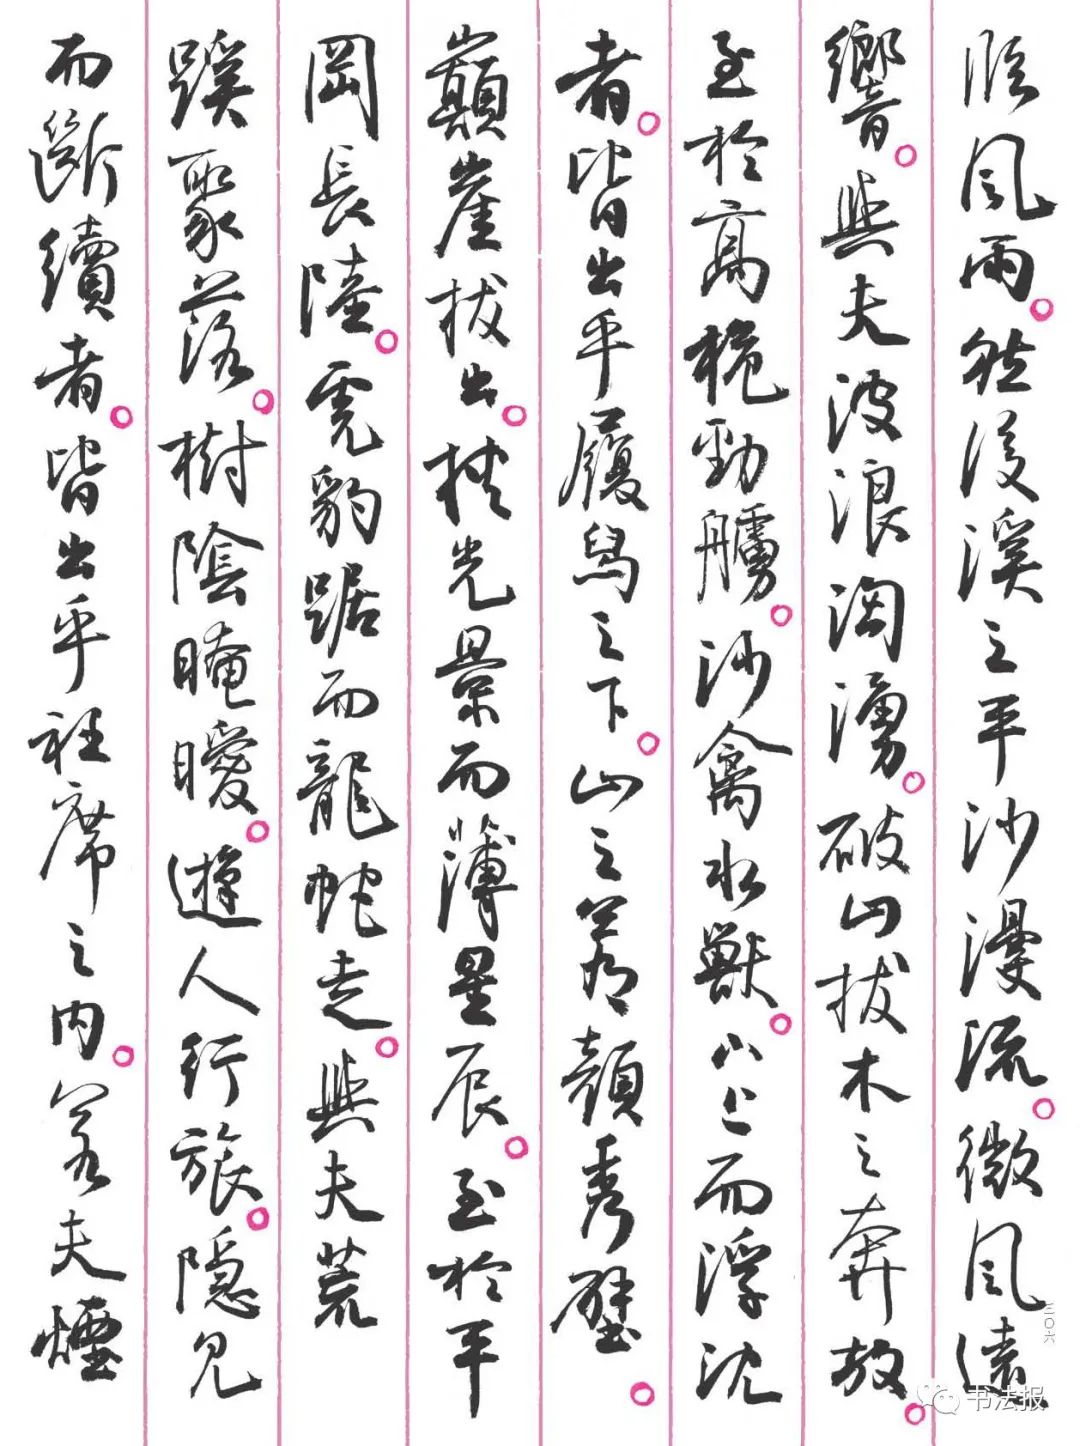 臨風雨。然後溪之平沙漫流。微風遠
響。與夫波浪洶湧。破山拔木之奔放。
至於高桅勁艣。沙禽水獸。下上而浮沈
者。皆出乎履舄之下。山之蒼顏秀壁。
巔崖拔出。挾光景而薄星辰。至於平
岡長陸。虎豹踞而龍蛇走。與夫荒
蹊聚落。樹陰晻曖。遊人行旅。隱見
而斷續者。皆出乎衽席之內。若夫煙
书法报